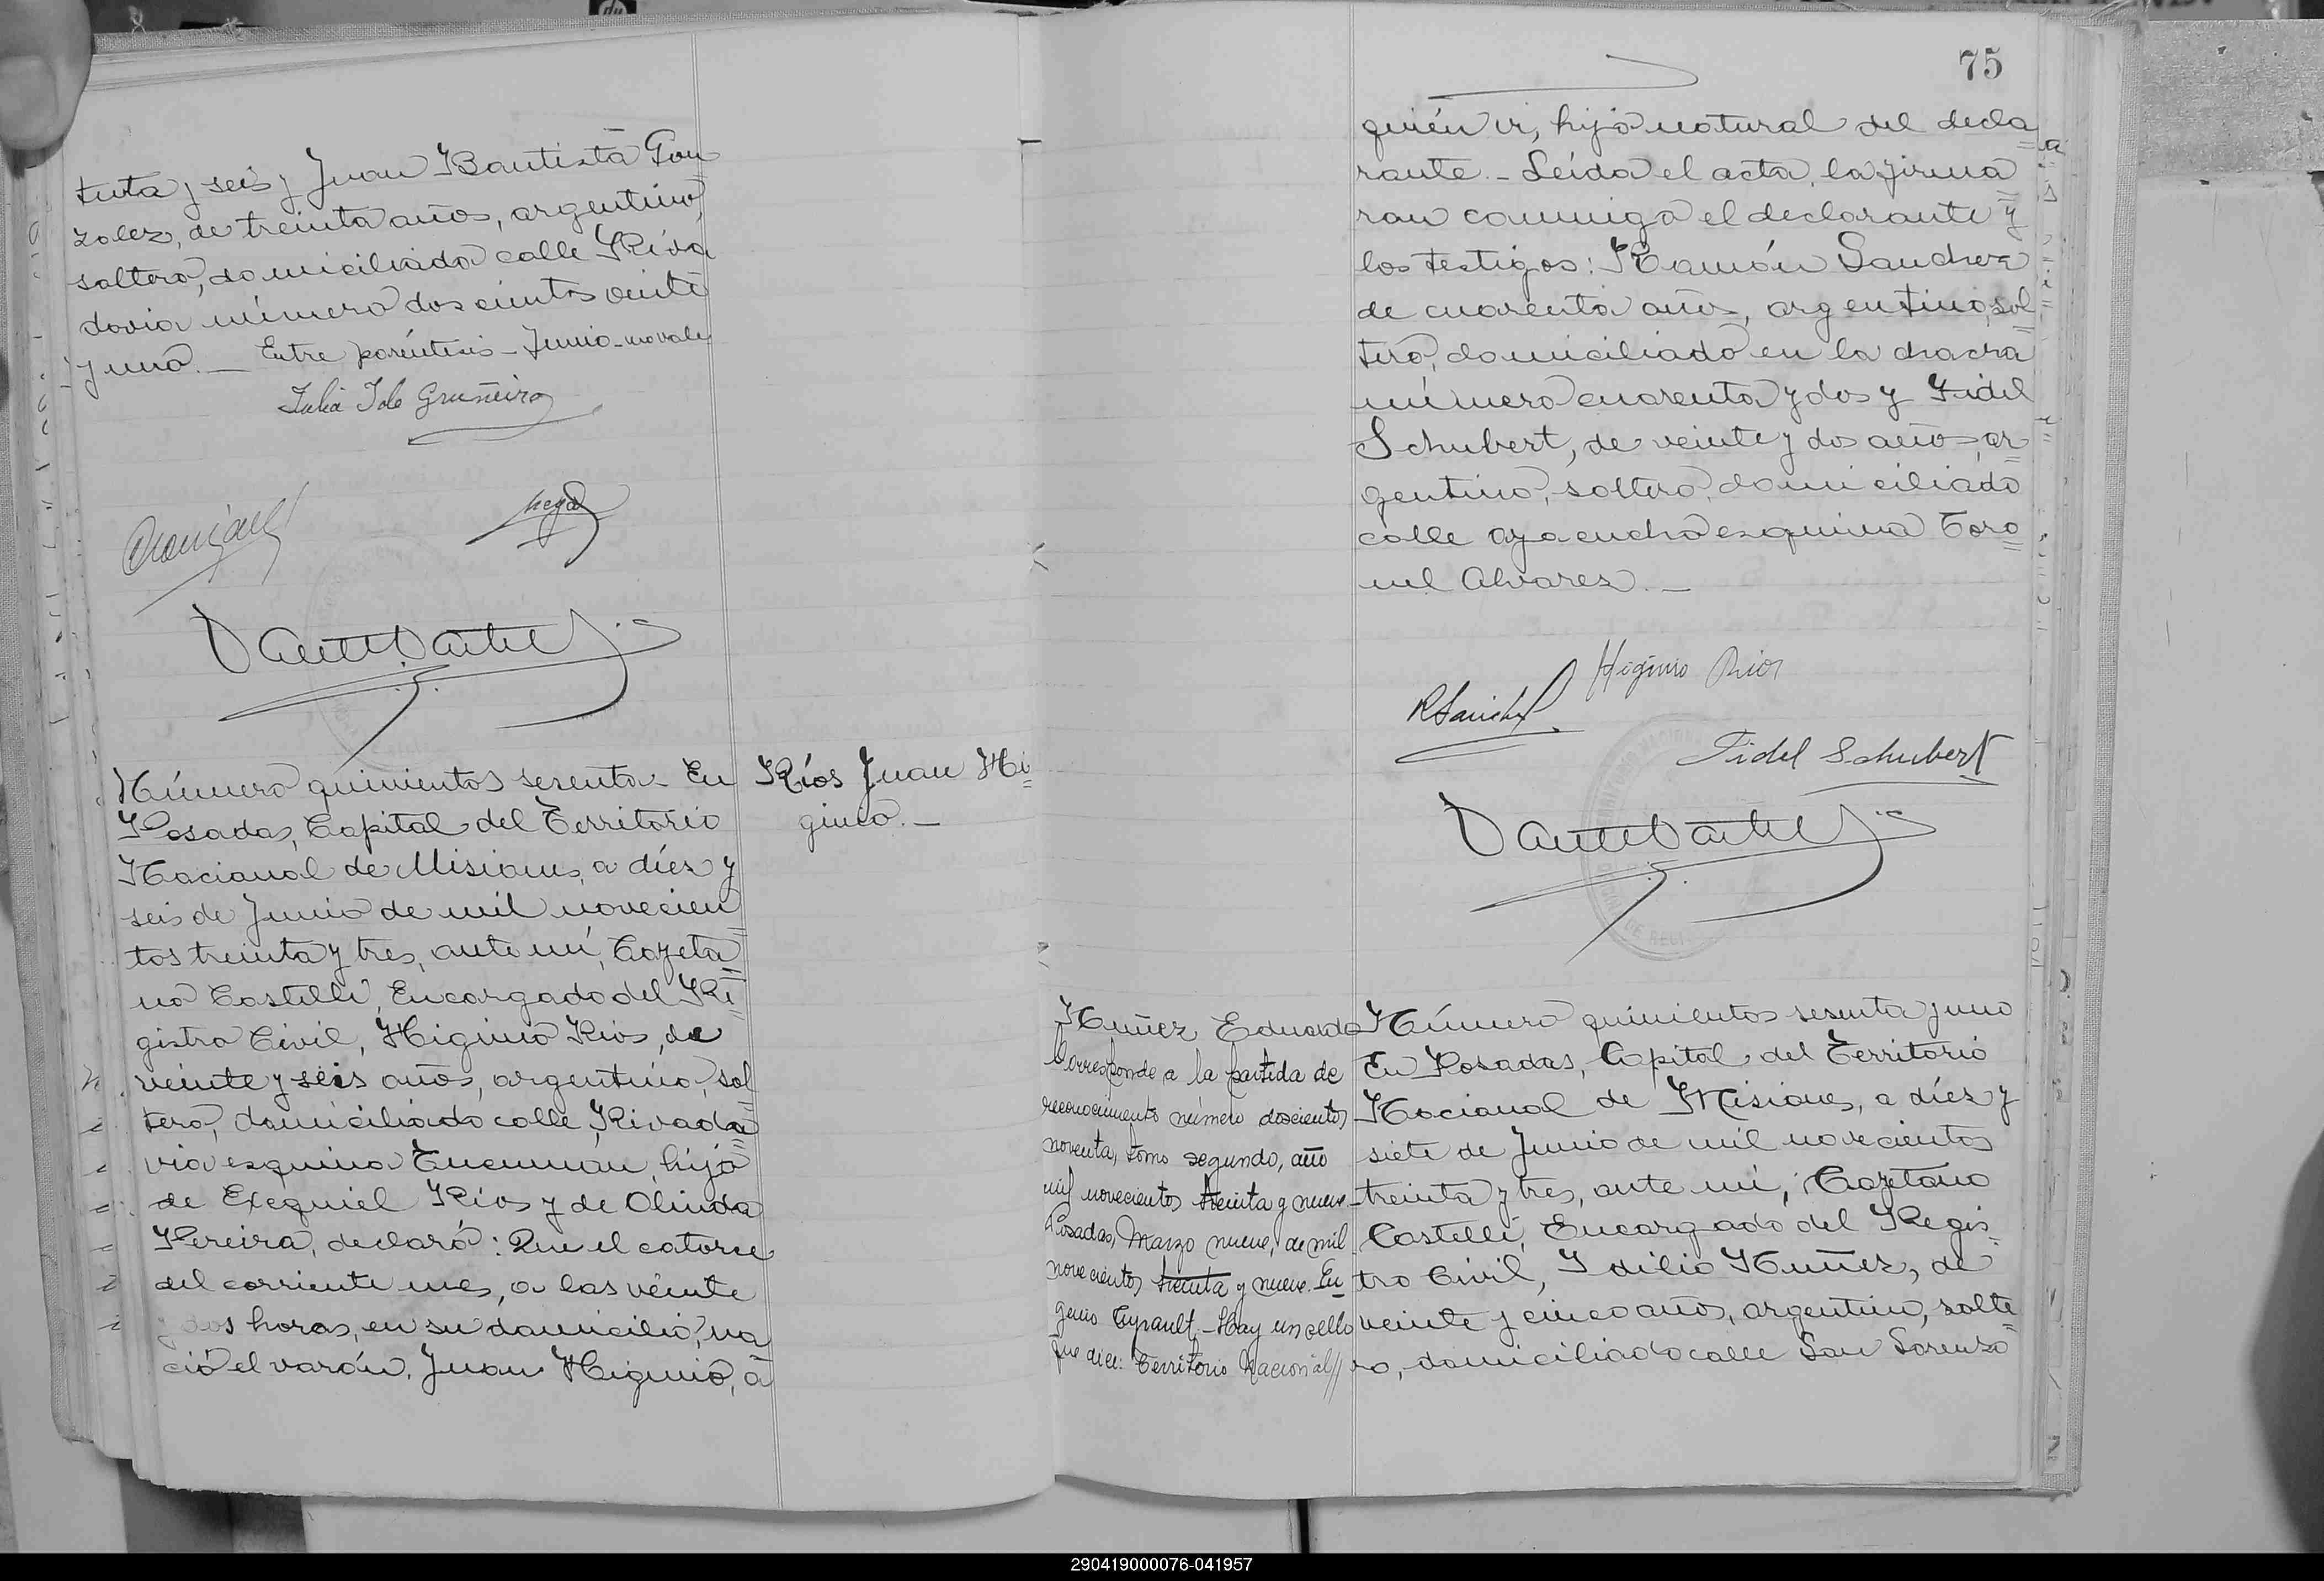 tenta y seis y Juan Bautista Gon
zalez, de treinta años, argentino,
soltero, domiciliado calle Riva
davia número doscientos veinte
y uno. — Entre paréntesis - Junio - no vale
Número quinientos sesenta - En
Posadas, Capital del Territorio
Nacional de Misiones, a diez y
seis de Junio de mil novecien
tos treinta y tres, ante mí, Cayeta
no Castelli, Encargado del Re
gistro Civil, Higinio Rios, de
veinte y seis años, argentino, sol
tero, domiciliado calle Rivada
via esquina Tucuman, hijo
de Exequiel Ríos y de Olinda
Pereira, declaró: Que el catorce
del corriente mes, a las veinte
y dos horas, en su domicilio, na
ció el varón, Juan Higinio, a
Ríos Juan Hi
ginio. —
75
quién vi, hijo natural del decla
rante. - Leída el acta, la firma
ron conmigo el declarante y
los testigos: Ramón Sanchez
de cuarenta años, argentino, sol
tero, domiciliado en la chacra
número cuarenta y dos y Fidel
Schubert, de veinte y dos años, ar
gentino, soltero, domiciliado
calle Ayacucho esquina Coro
nel Alvarez. —
Higinio Rios
RSanchez
Fidel Schubert
Nuñez Eduardo
Corresponde a la partida de
reconocimiento número doscientos
noventa, tomo segundo, año
mil novecientos treinta y nueve -
Posadas, Marzo nueve, de mil
novecientos treinta y nueve. Eu
genio - Hay un sello
que dice: Territorio Nacional //
Número quinientos sesenta y uno
En Posadas, Capital del Territorio
Nacional de Misiones, a diez y
siete de Junio de mil novecientos
treinta y tres, ante mí, Cayetano
Castelli, Encargado del Regis
tro Civil, Idilio Nuñez, de
veinte y cinco años, argentino, solte
ro, domiciliado calle San Lorenzo
290419000076-041957